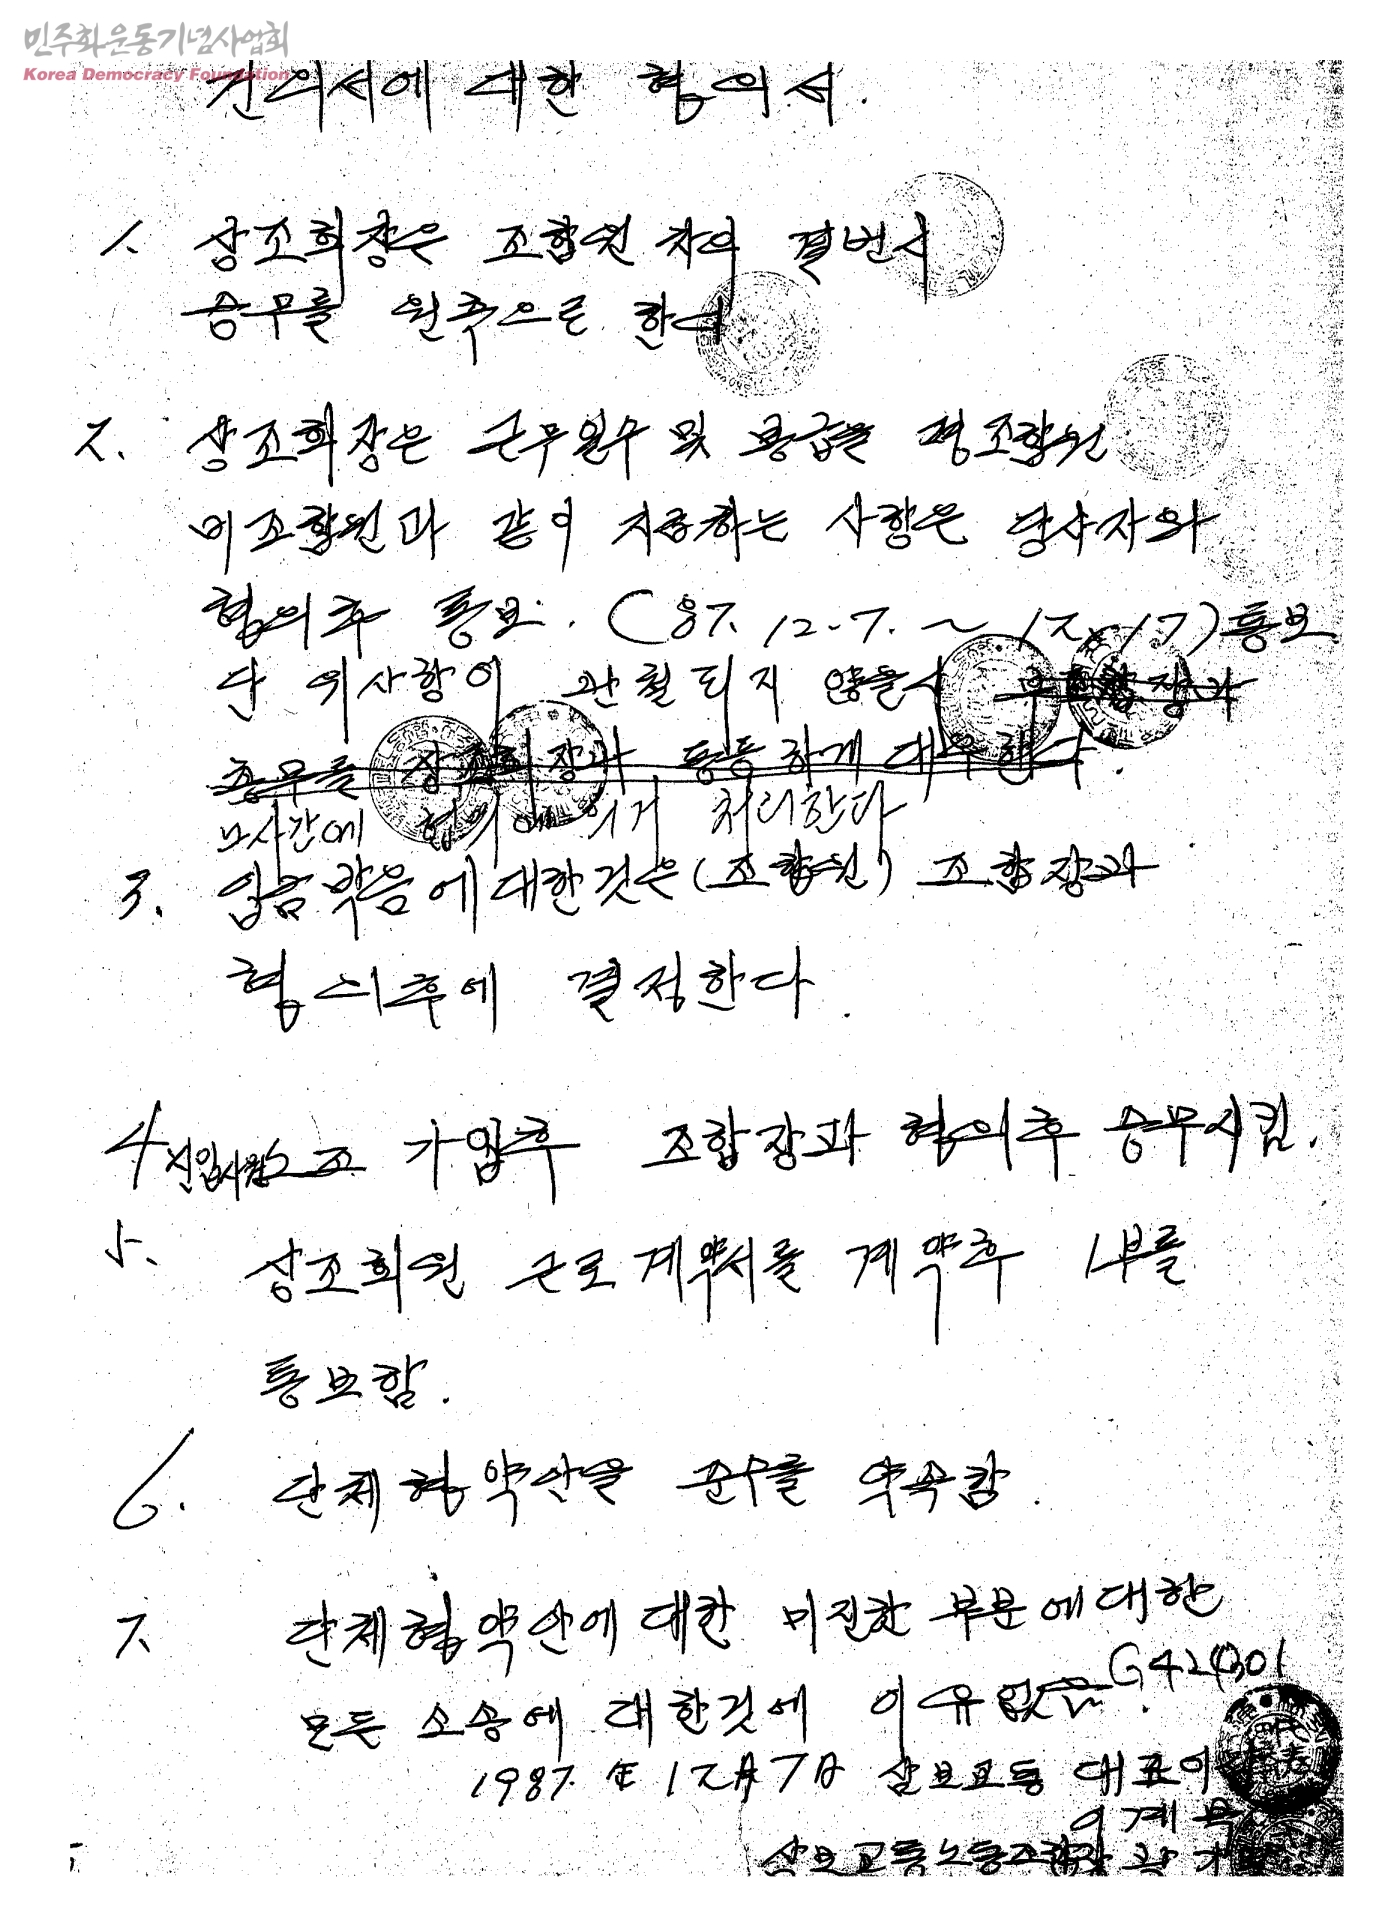 민주화운동기념사업회
Korea Democracy Foundation
건의서에 대한 협의서.
1. 상조회장은 조합원 차의 결번시
승무를 원측으로 한다
2. 상조회장은 근무일수 및 봉급을 평조합원
비조합원과 같이 지급하는 사항은 당사자와
협의후 통보. (87. 12. 7. ~ 12. 17) 통보
단 위사항이 관철되지 않을시
총무를 상조회장과 동등하게 대우한다.
노사간에 협의에 의거 처리한다
3. 입금 에 대한것은 (조합원) 조합장과
협의후에 결정한다.
4 신입사원 노조 가입후 조합장과 협의후 승무시킴.
5. 상조회원 근로계약서를 계약후 1부를
통보함.
6. 단체협약안을 준수를 약속함.
7. 단체협약안에 대한 미진한 부문에 대한
모든 소송에 대한것에 이유없음.
1987. 年 12月 7日 삼보교통 대표이
이계
삼보교통노동조합장